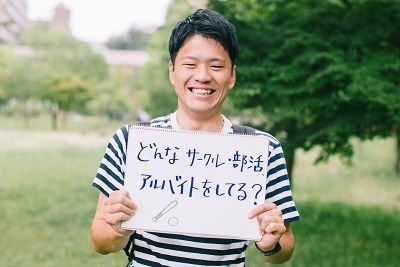 どんな サークル・部活、
アルバイトをしてる?